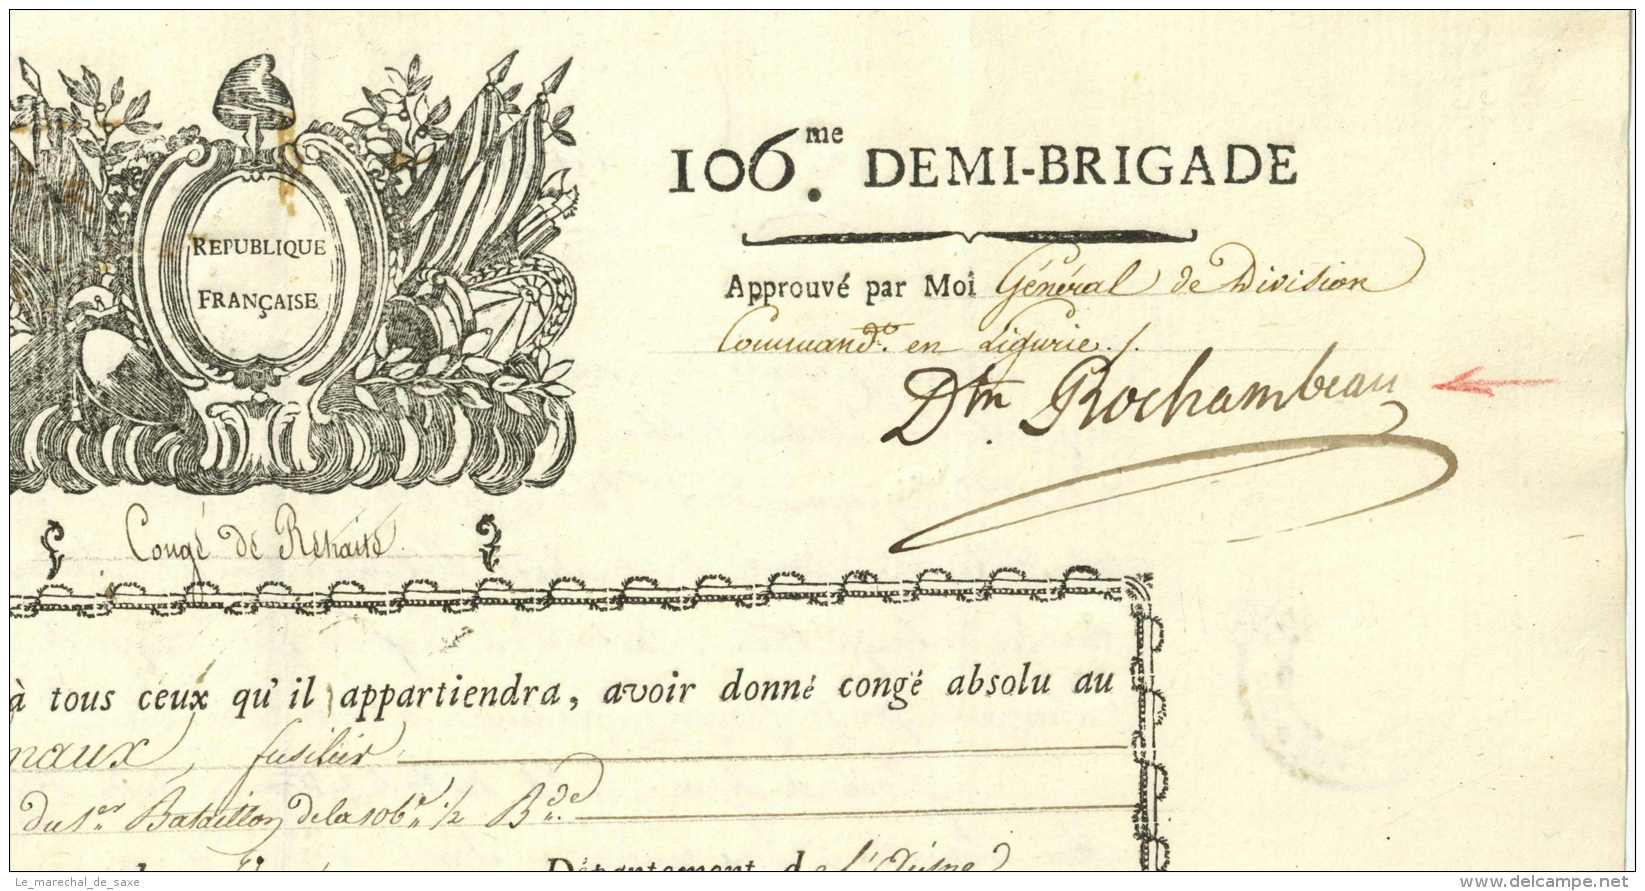 REPUBLIQUE
FRANÇAISE
106.me DEMI-BRIGADE
Approuvé par Moi Général de Division
Command.t en Ligurie ./.
Dtn Rochambeau
Congé de Retraite
à tous ceux qu'il appartiendra, avoir donné congé absolu au
naux, fusilier
du 1er Bataillon de la 106e 1/2 B.de
Département de l'Aisne
Le_marechal_de_saxe
delcampe.net